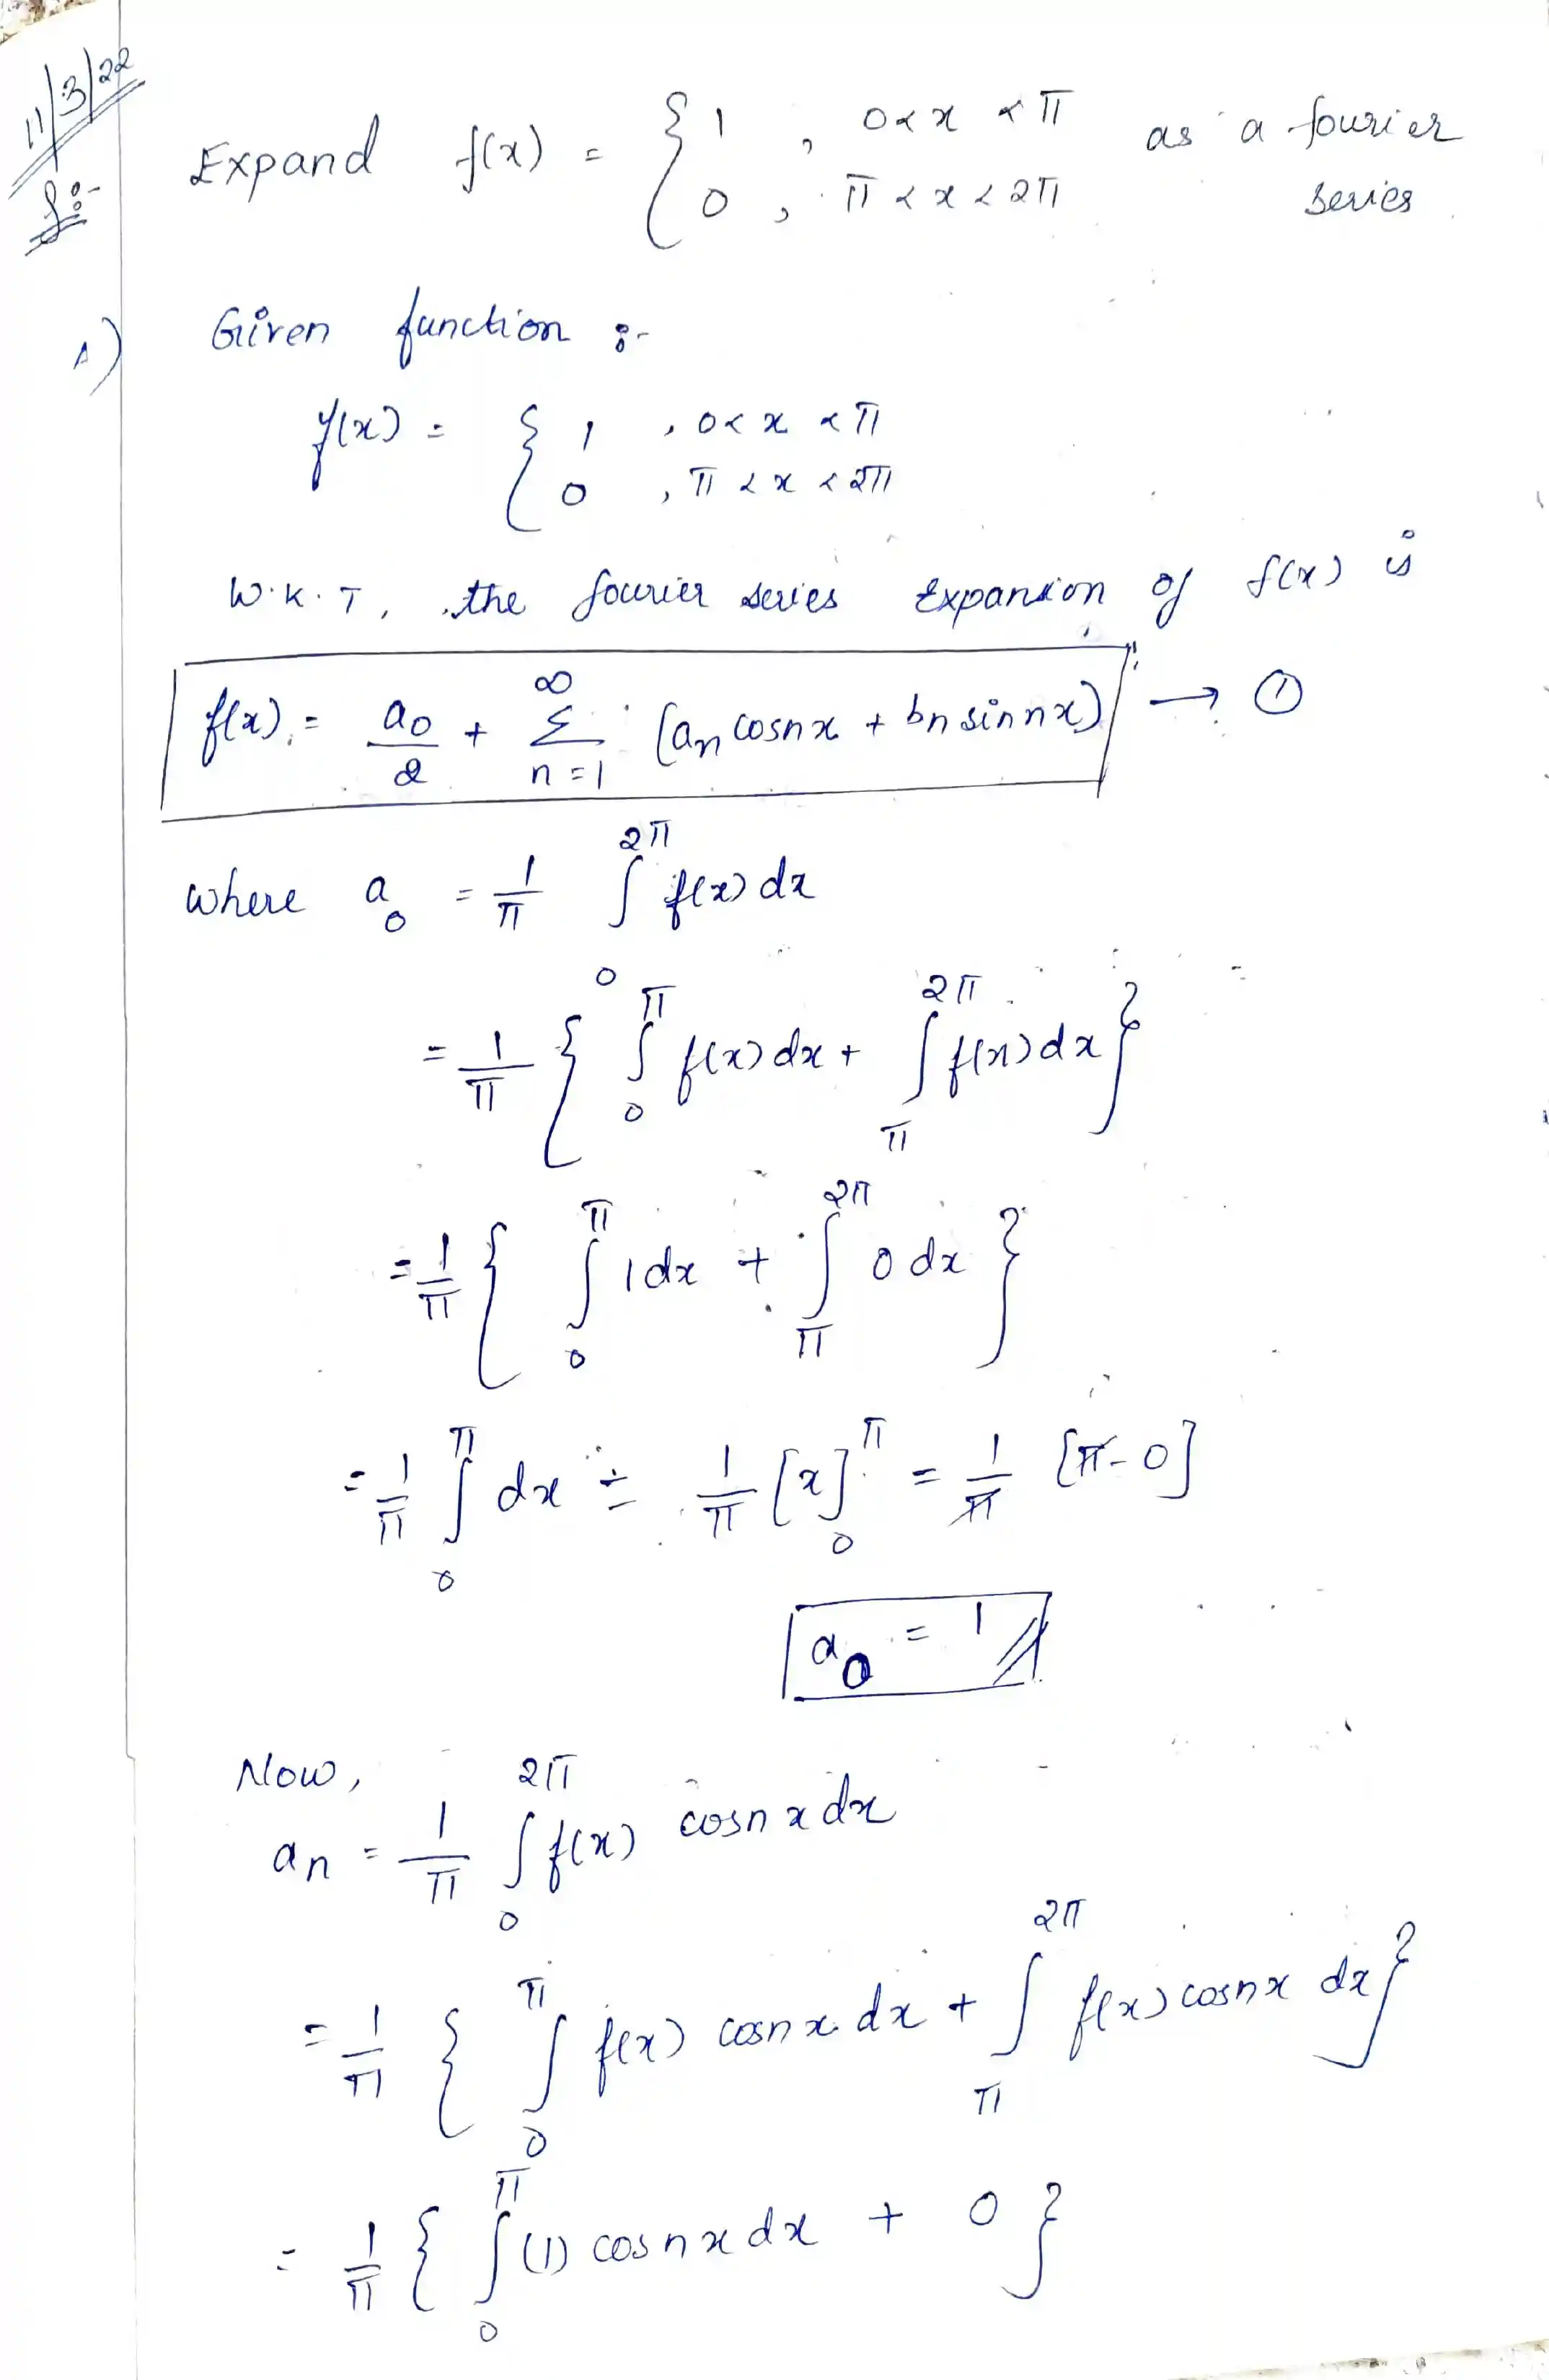 11/3/22
8:-
Expand f(x) = { 1 , 0<x<π
0 , π<x<2π as a fourier
series
A) Given function :-
f(x) = { 1 , 0<x<π
0 , π<x<2π
W.K.T, the fourier series Expansion of f(x) is
f(x) = a0/2 + ∞Σn=1 (an cosnx + bn sinnx) → ①
where a0 = 1/π ∫₀^2π f(x) dx
= 1/π { ∫₀^π f(x) dx + ∫π^2π f(x) dx }
= 1/π { ∫₀^π 1 dx + ∫π^2π 0 dx }
= 1/π ∫₀^π dx = 1/π [x]₀^π = 1/π [π-0]
a0 = 1
Now,
an = 1/π ∫₀^2π f(x) cosnx dx
= 1/π { ∫₀^π f(x) cosnx dx + ∫π^2π f(x) cosnx dx }
= 1/π { ∫₀^π (1) cosnx dx + 0 }